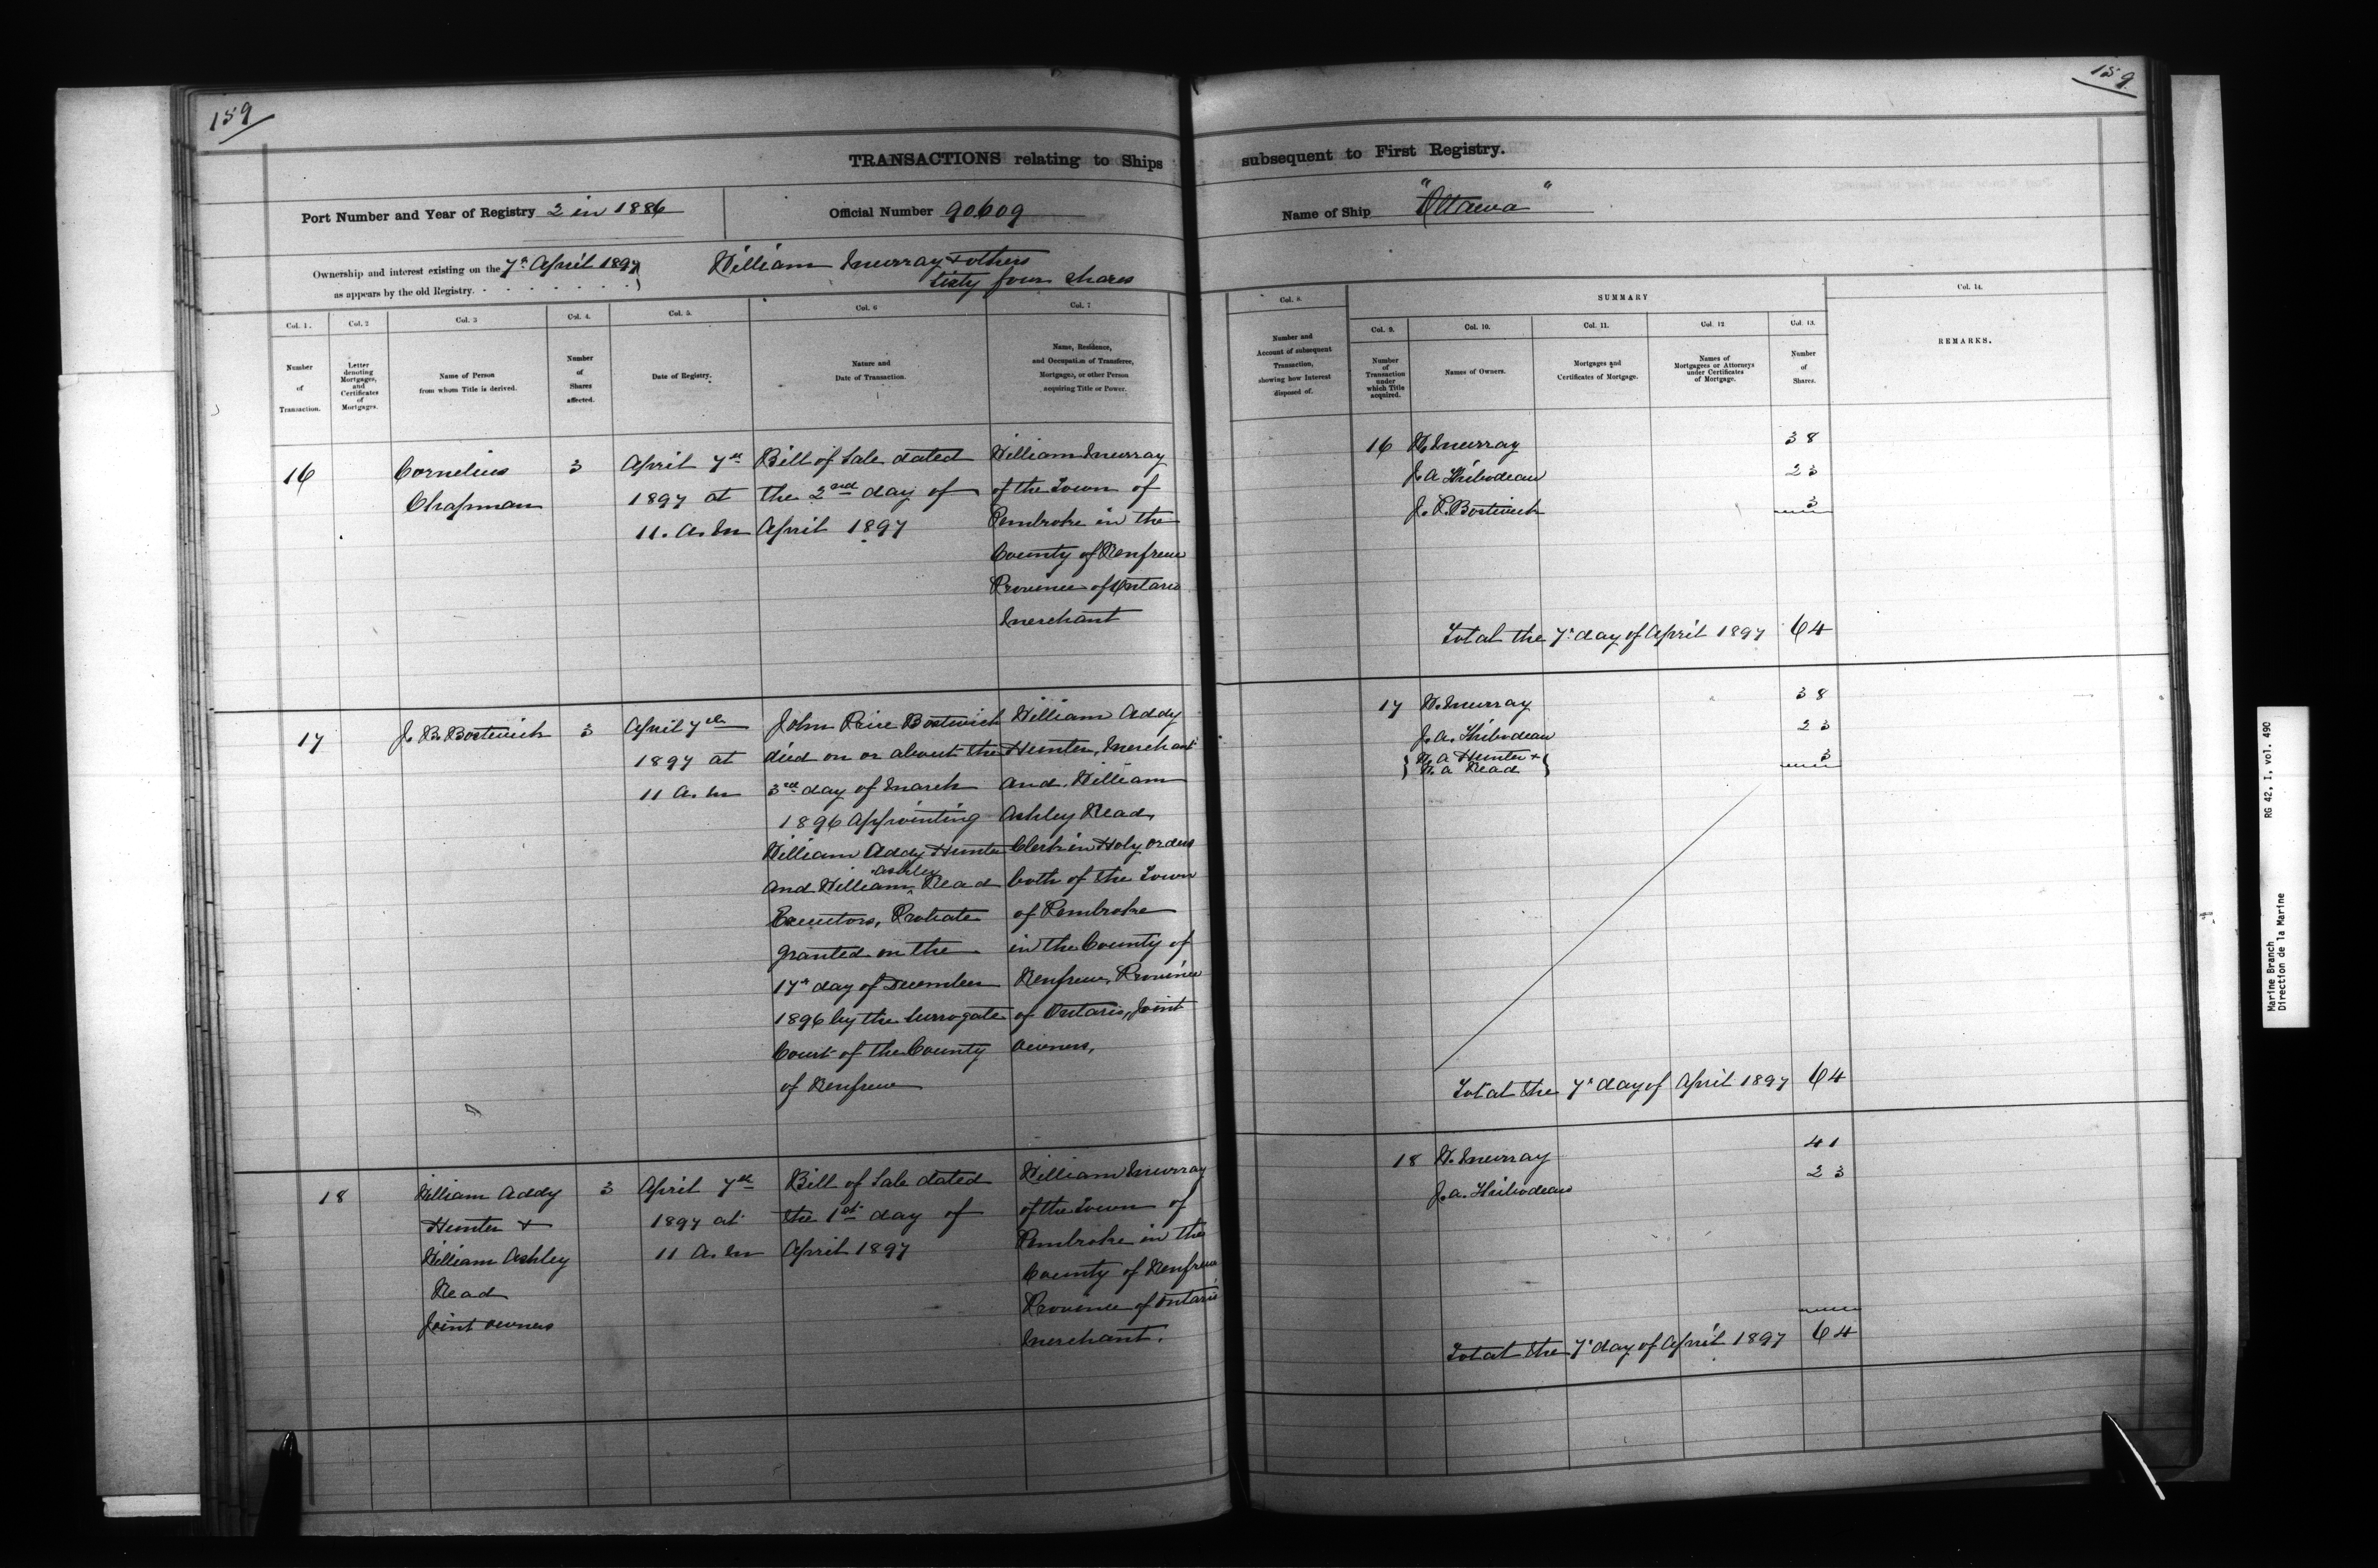 159
159
TRANSACTIONS relating to Ships subsequent to First Registry.
Port Number and Year of Registry 2 in 1886
Official Number 90609
Name of Ship "Ottawa"
Ownership and interest existing on the 7th April 1897
as appears by the old Registry.
William Murray & others
Sixty four shares
Col. 1.
Number
of
Transaction.
Col. 2
Letter
denoting
Mortgages,
and
Certificates
of
Mortgages.
Col. 3
Name of Person
from whom Title is derived.
Col. 4.
Number
of
Shares
affected.
Col. 5.
Date of Registry.
Col. 6
Nature and
Date of Transaction.
Col. 7
Name, Residence,
and Occupation of Transferee,
Mortgagee, or other Person
acquiring Title or Power.
Col. 8.
Number and
Account of subsequent
Transaction,
showing how Interest
disposed of.
SUMMARY
Col. 9.
Number
of
Transaction
under
which Title
acquired.
Col. 10.
Names of Owners.
Col. 11.
Mortgages and
Certificates of Mortgage.
Col. 12
Names of
Mortgagees or Attorneys
under Certificates
of Mortgage.
Col. 13.
Number
of
Shares.
Col. 14.
REMARKS.
16
Cornelius
Chapman
3
April 7th
1897 at
11. A. M
Bill of Sale dated
the 2nd day of
April 1897
William Murray
of the Town of
Pembroke in the
County of Renfrew
Province of Ontario
Merchant
16 W. Murray 38
J. A. Thibodeau 23
J. P. Bostwick 3
Total the 7th day of April 1897 64
17
J. P. Bostwick
3
April 7th
1897 at
11 A. M
John Price Bostwick
died on or about the
3rd day of March
1896 Appointing
William Addy Hunter
and William Ashley Read
Executors, Probate
granted on the
17th day of December
1896 by the Surrogate
Court of the County
of Renfrew
William Addy
Hunter, Merchant
and William
Ashley Read,
Clerk in Holy Orders
both of the Town
of Pembroke
in the County of
Renfrew, Province
of Ontario, Joint
Owners,
17 W. Murray 38
J. A. Thibodeau 23
W. A Hunter &
W. A Read 3
Total the 7th day of April 1897 64
18
William Addy
Hunter &
William Ashley
Read
Joint owners
3
April 7th
1897 at
11 A. M
Bill of Sale dated
the 1st day of
April 1897
William Murray
of the Town of
Pembroke in the
County of Renfrew
Province of Ontario
Merchant.
18 W. Murray 41
J. A. Thibodeau 23
Total the 7th day of April 1897 64
Marine Branch RG 42, I, vol. 490
Direction de la Marine